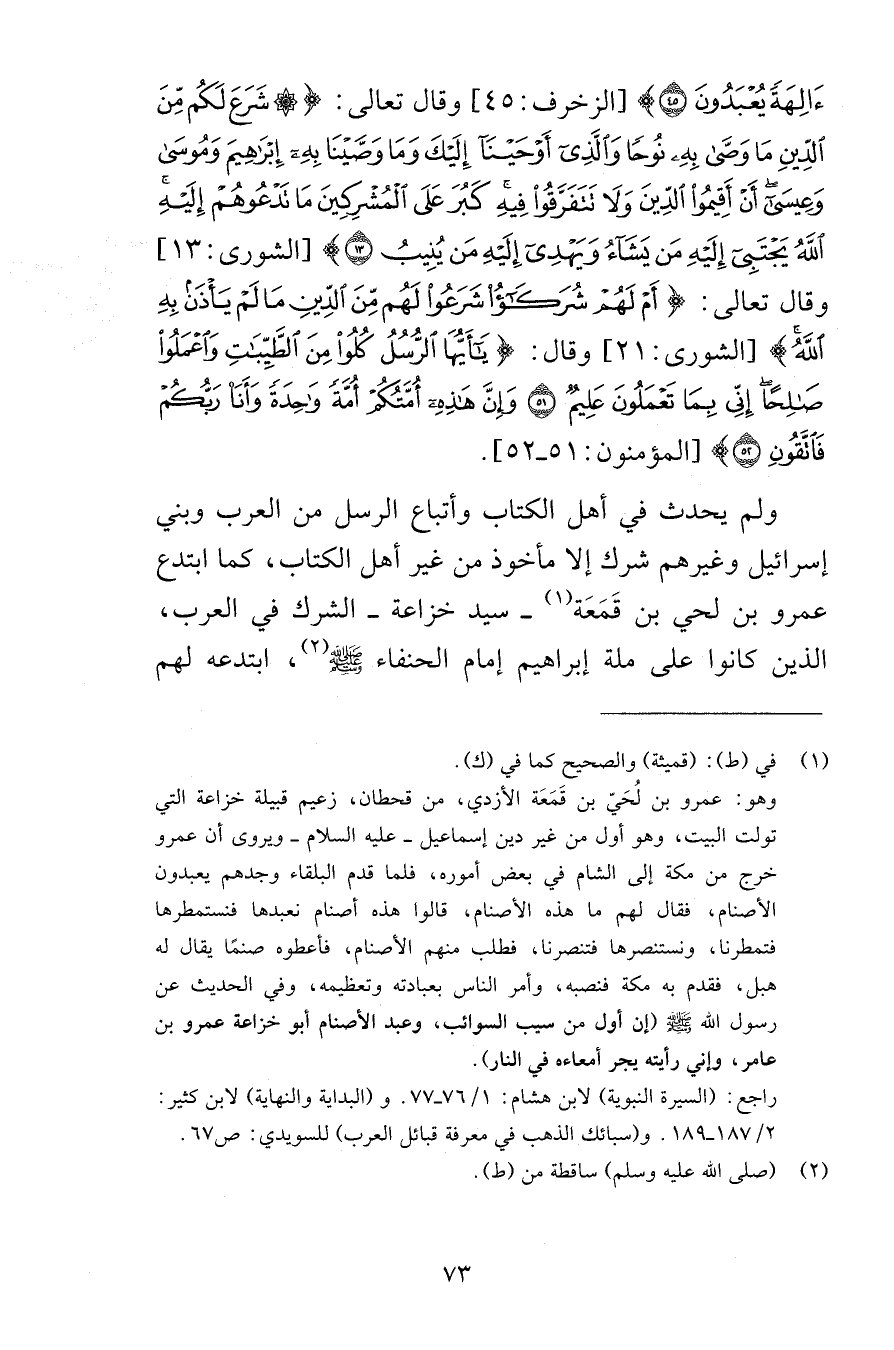 ءَالِهَةً يُعْبَدُونَ ﴿٤٥﴾ ﴾ [الزخرف: ٤٥] وقال تعالى: ﴿ ۞ شَرَعَ لَكُم مِّنَ
ٱلدِّينِ مَا وَصَّىٰ بِهِۦ نُوحًا وَٱلَّذِىٓ أَوْحَيْنَآ إِلَيْكَ وَمَا وَصَّيْنَا بِهِۦٓ إِبْرَٰهِيمَ وَمُوسَىٰ
وَعِيسَىٰٓ ۖ أَنْ أَقِيمُوا۟ ٱلدِّينَ وَلَا تَتَفَرَّقُوا۟ فِيهِ ۚ كَبُرَ عَلَى ٱلْمُشْرِكِينَ مَا تَدْعُوهُمْ إِلَيْهِ ۚ
ٱللَّهُ يَجْتَبِىٓ إِلَيْهِ مَن يَشَآءُ وَيَهْدِىٓ إِلَيْهِ مَن يُنِيبُ ﴿١٣﴾ ﴾ [الشورى: ١٣]
وقال تعالى: ﴿ أَمْ لَهُمْ شُرَكَٰٓؤُا۟ شَرَعُوا۟ لَهُم مِّنَ ٱلدِّينِ مَا لَمْ يَأْذَنۢ بِهِ
ٱللَّهُ ۚ ﴾ [الشورى: ٢١] وقال: ﴿ يَٰٓأَيُّهَا ٱلرُّسُلُ كُلُوا۟ مِنَ ٱلطَّيِّبَٰتِ وَٱعْمَلُوا۟
صَٰلِحًا ۖ إِنِّى بِمَا تَعْمَلُونَ عَلِيمٌ ﴿٥١﴾ وَإِنَّ هَٰذِهِۦٓ أُمَّتُكُمْ أُمَّةً وَٰحِدَةً وَأَنَا۠ رَبُّكُمْ
فَٱتَّقُونِ ﴿٥٢﴾ ﴾ [المؤمنون: ٥١ـ٥٢].
ولم يحدث في أهل الكتاب وأتباع الرسل من العرب وبني
إسرائيل وغيرهم شرك إلا مأخوذ من غير أهل الكتاب، كما ابتدع
عمرو بن لحي بن قَمَعَة(١) ـ سيد خزاعة ـ الشرك في العرب،
الذين كانوا على ملة إبراهيم إمام الحنفاء ﷺ(٢)، ابتدعه لهم
(١) في (ط): (قميئة) والصحيح كما في (ك).
وهو: عمرو بن لُحَيّ بن قَمَعَة الأزدي، من قحطان، زعيم قبيلة خزاعة التي
تولت البيت، وهو أول من غير دين إسماعيل ـ عليه السلام ـ ويروى أن عمرو
خرج من مكة إلى الشام في بعض أموره، فلما قدم البلقاء وجدهم يعبدون
الأصنام، فقال لهم ما هذه الأصنام، قالوا هذه أصنام نعبدها فنستمطرها
فتمطرنا، ونستنصرها فتنصرنا، فطلب منهم الأصنام، فأعطوه صنمًا يقال له
هبل، فقدم به مكة فنصبه، وأمر الناس بعبادته وتعظيمه، وفي الحديث عن
رسول الله ﷺ (إن أول من سيب السوائب، وعبد الأصنام أبو خزاعة عمرو بن
عامر، وإني رأيته يجر أمعاءه في النار).
راجع: (السيرة النبوية) لابن هشام: ١/ ٧٦ـ٧٧. و (البداية والنهاية) لابن كثير:
٢/ ١٨٧ـ١٨٩. و(سبائك الذهب في معرفة قبائل العرب) للسويدي: ص٦٧.
(٢) (صلى الله عليه وسلم) ساقطة من (ط).
٧٣